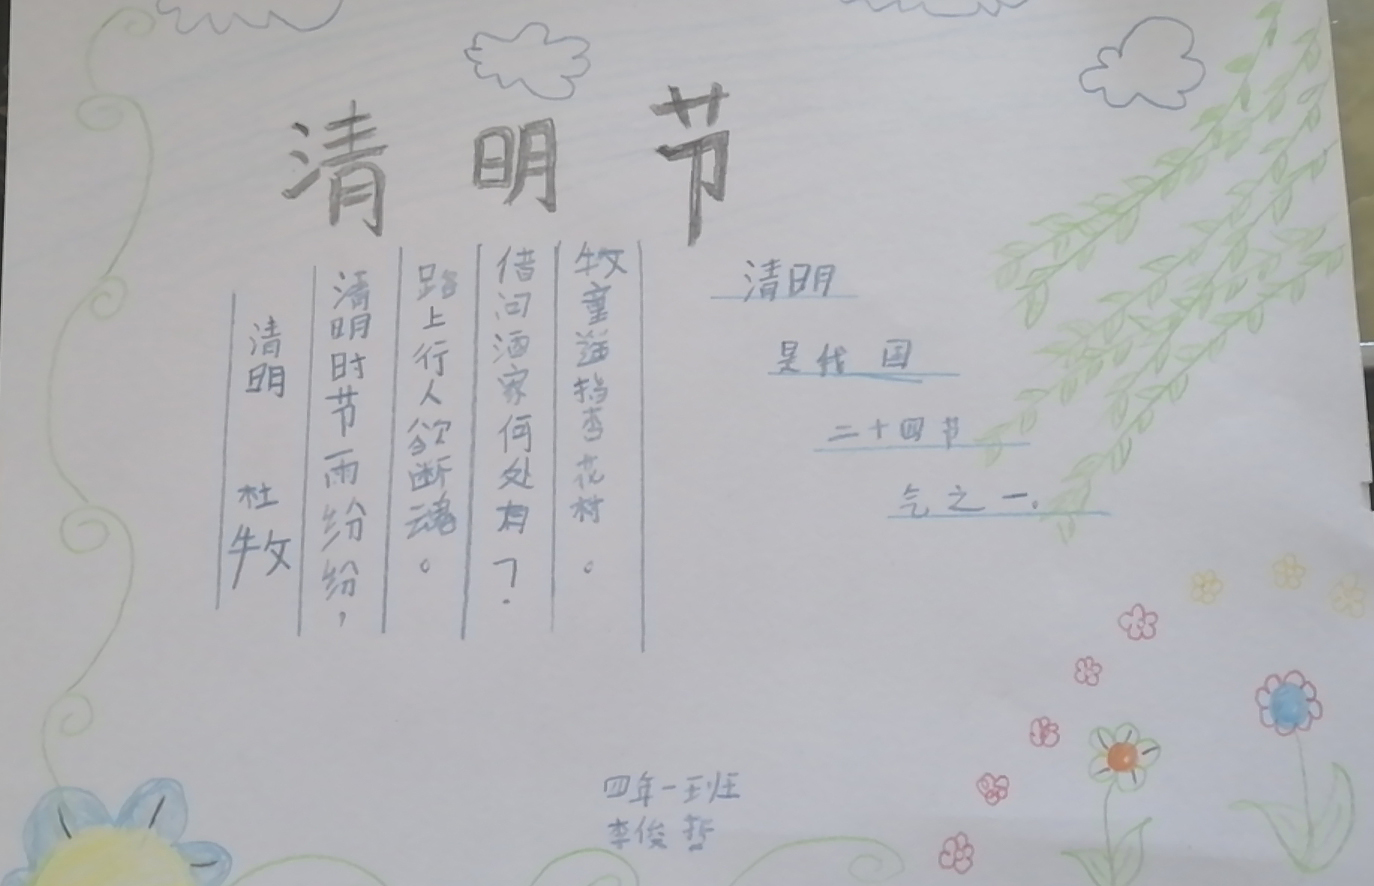 清明节
清明 杜牧
清明时节雨纷纷，
路上行人欲断魂。
借问酒家何处有？
牧童遥指杏花村。
清明
是代国
二十四节
气之一.
四年一班
李俊哲